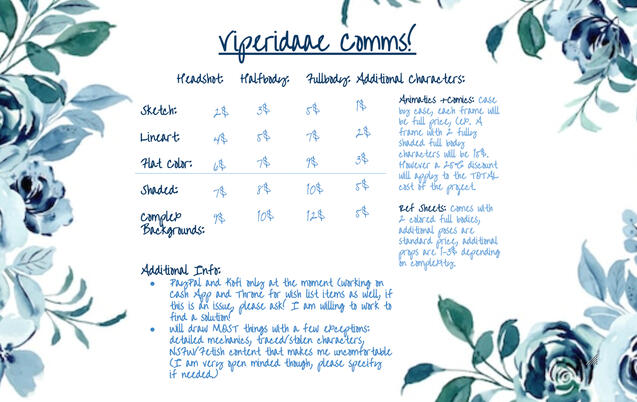 Viperidaae Comms!
Headshot: Halfbody: Fullbody: Additional Characters:
Sketch: 2$ 3$ 5$ 1$
Lineart: 4$ 5$ 7$ 2$
Flat Color: 6$ 7$ 9$ 3$
Shaded: 7$ 8$ 10$ 5$
Complex 9$ 10$ 12$ 5$
Backgrounds:
Animatics +Comics: Case
by case, each frame will
be full price, (ex. A
frame with 2 fully
shaded full body
characters will be 15$.
However a 25% discount
will apply to the TOTAL
cost of the project.
Ref Sheets: Comes with
2 colored full bodies,
additional poses are
standard price, additional
props are 1-3$ depending
on complexity.
Additional Info:
PayPal and Kofi only at the moment (working on
Cash App and Throne for wish list items as well, if
this is an issue, please ask! I am willing to work to
find a solution!
will draw MOST things with a few exceptions:
detailed mechanics, traced/stolen characters,
NSFW/Fetish content that makes me uncomfortable
(I am very open minded though, please specify
if needed)